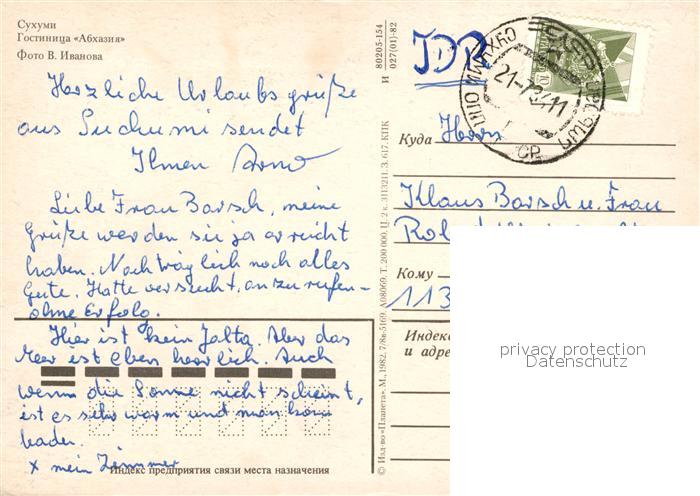 Сухуми
Гостиница «Абхазия»
Фото В. Иванова
Herzliche Urlaubsgrüße
aus Suchumi sendet
Ihnen Arno
Liebe Frau Barsch, meine
Grüße werden sie ja erreicht
haben. Nachträglich noch alles
Gute. Hatte versucht, anzurufen –
ohne Erfolg.
Hier ist kein Jalta. Aber das
Meer ist eben herrlich. Auch
wenn die Sonne nicht scheint,
ist es sehr warm und man kann
baden.
x mein Zimmer
Индекс предприятия связи места назначения
80205-154
И 027(01)-82
© Изд-во «Планета» М., 1982. 7/8в-5169. А08069. Т. 200 000. Ц. 2 к. 3113211. З. 617. КПК
JDR
21-7
11
Куда Herrn
Klaus Barsch u. Frau
Кому
113
Индекс
и адре
privacy protection
Datenschutz